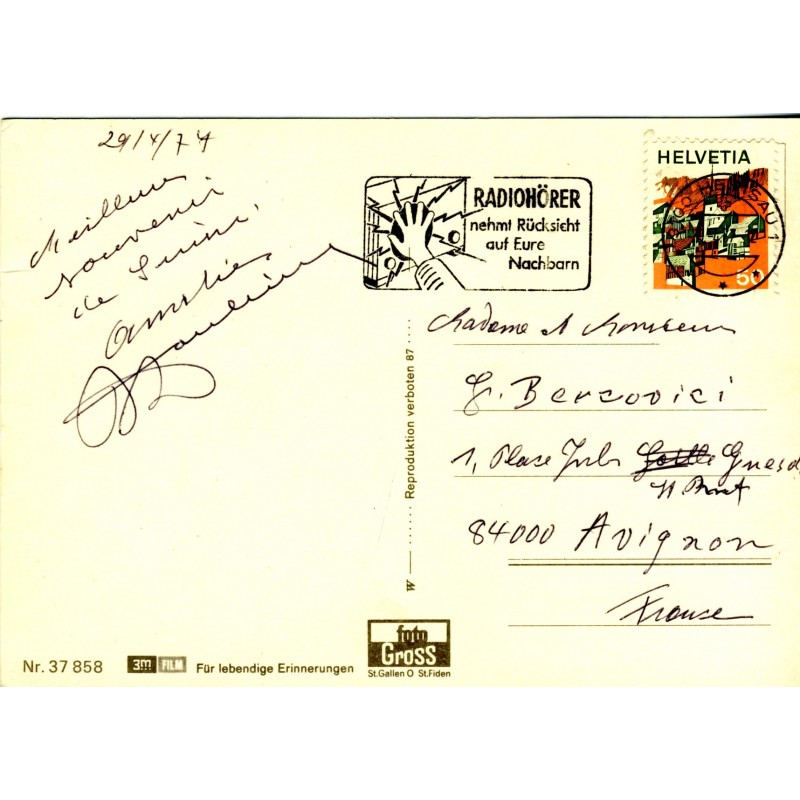 29/4/74
Meilleurs
souvenirs
de Suisse.
Amitiés
RADIOHÖRER
nehmt Rücksicht
auf Eure
Nachbarn
HELVETIA
50
Madame et Monsieur
G. Bercovici
1, Place Jules Guesde
84000 Avignon
France
W — ...... Reproduktion verboten 87 ....
Nr. 37 858
3m FILM
Für lebendige Erinnerungen
foto
Gross
St.Gallen O St.Fiden